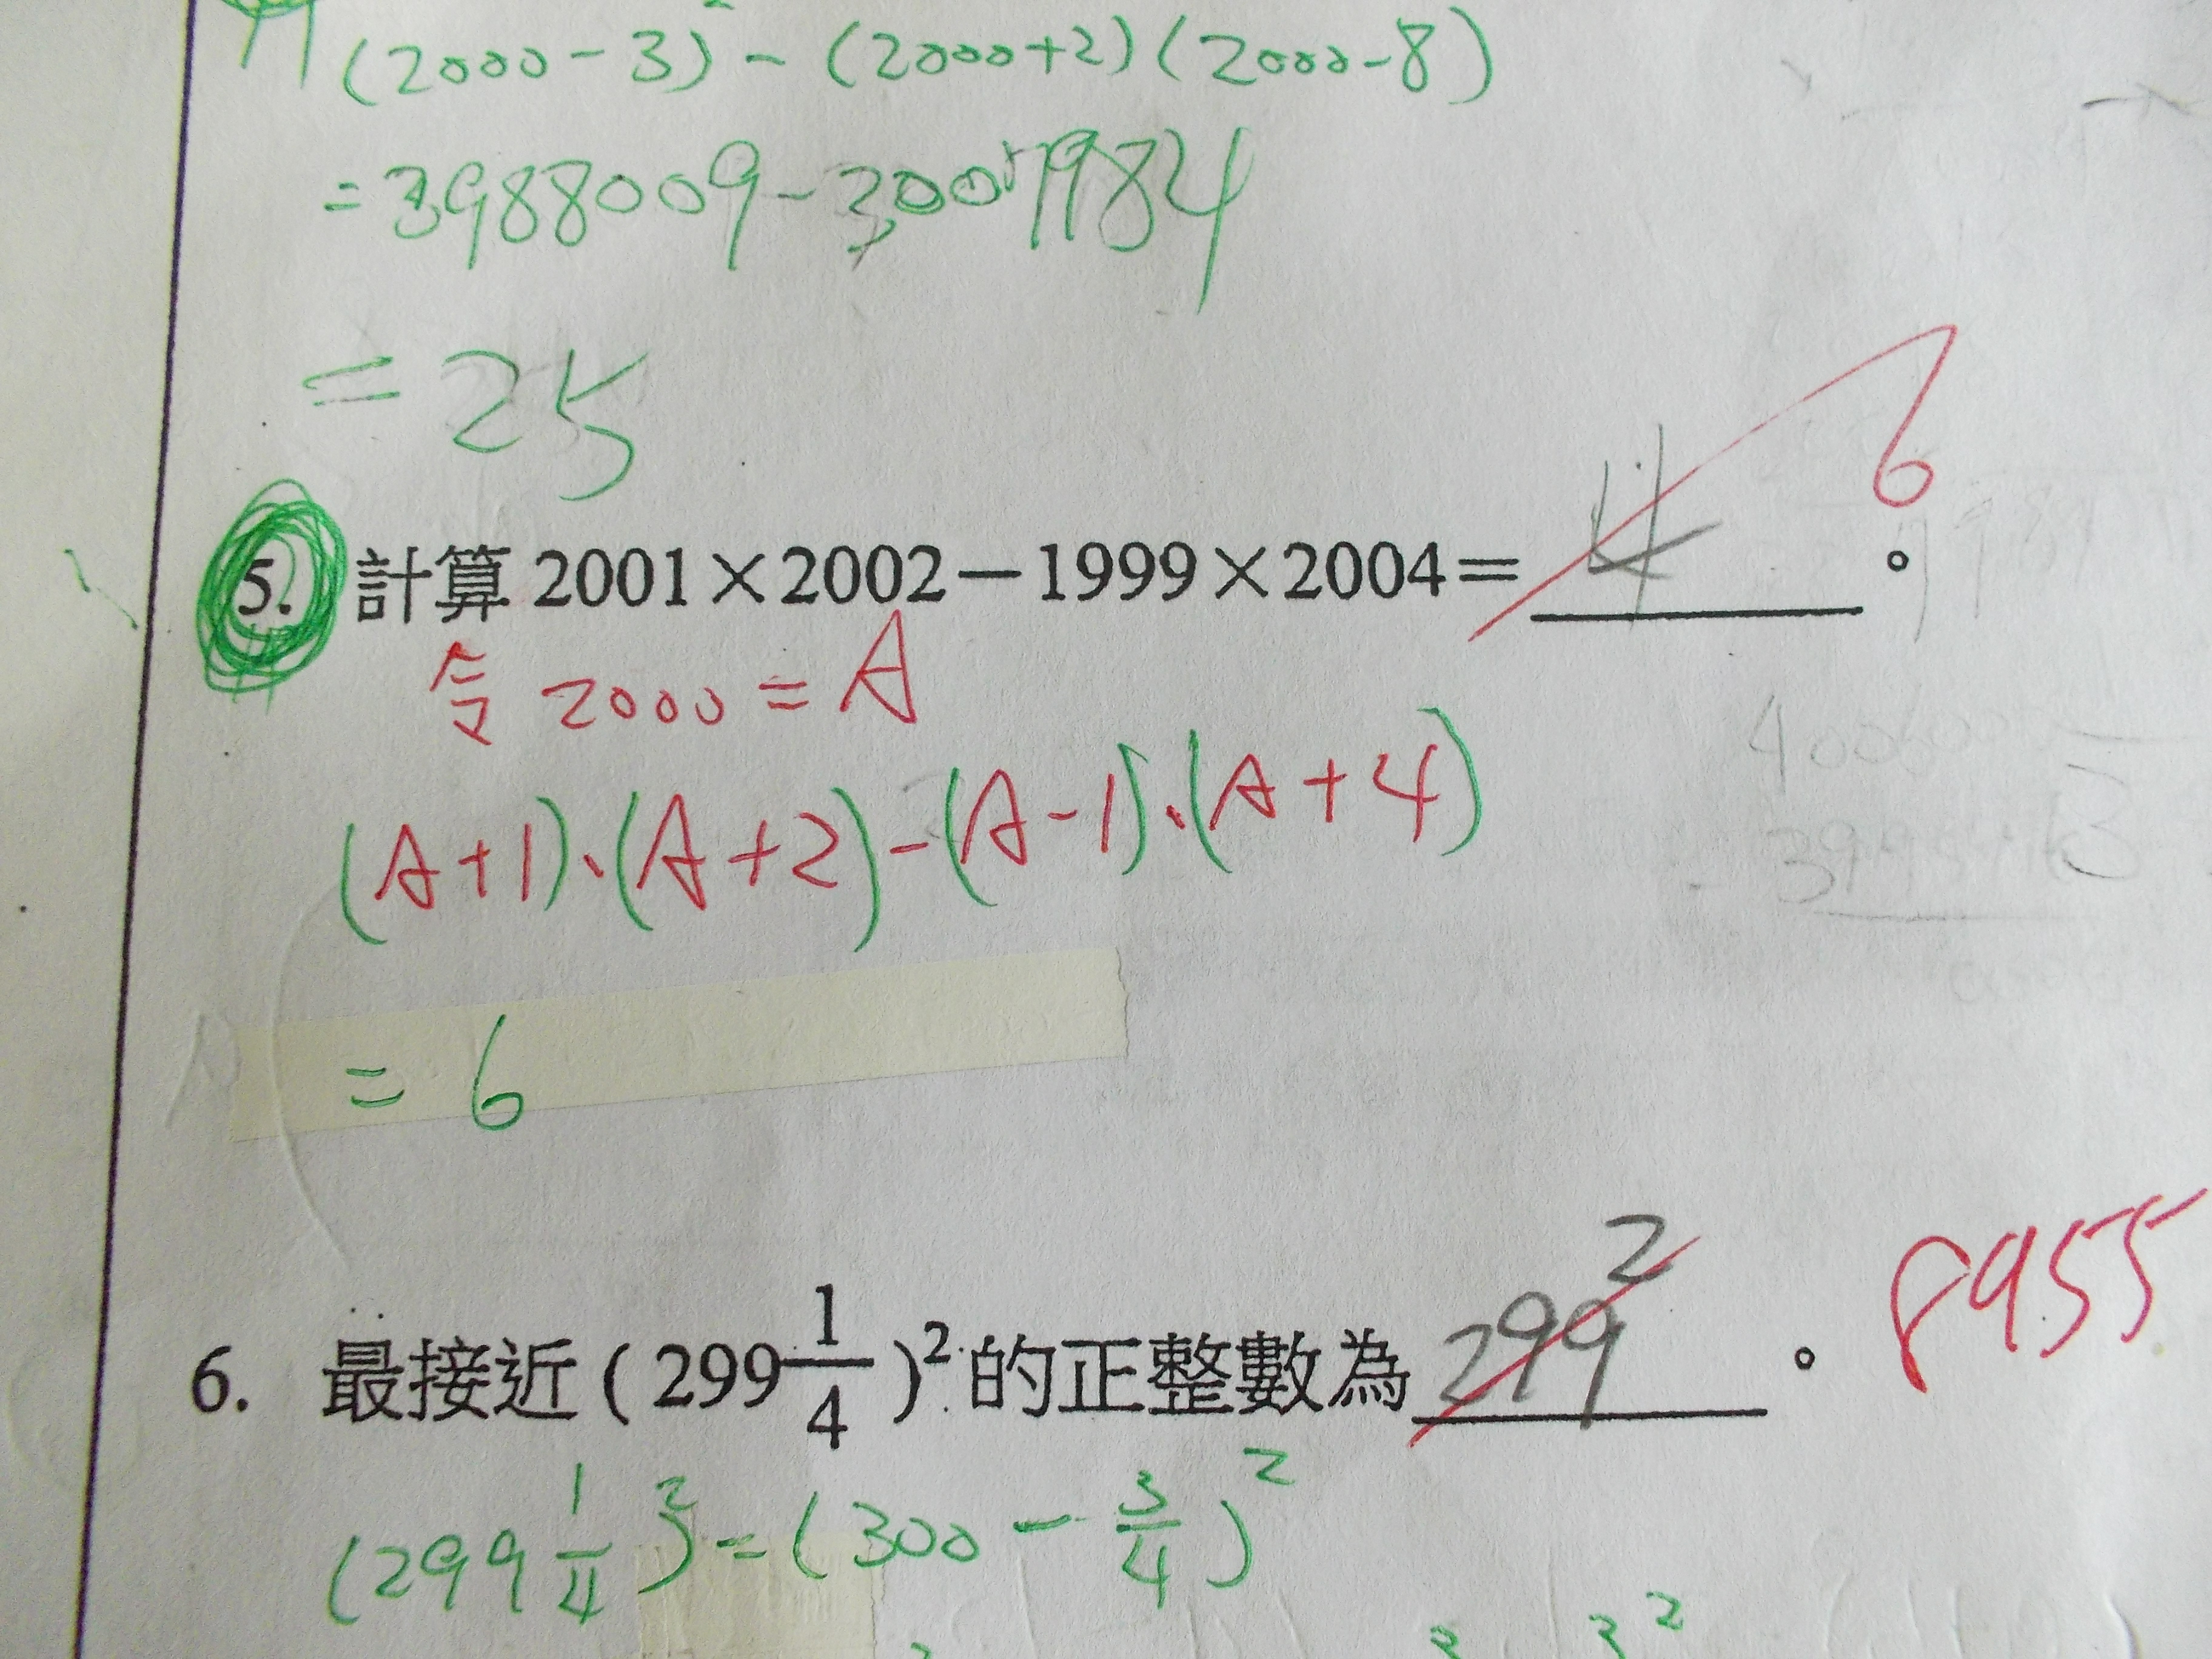 (2000-3)² - (2000+2)(2000-8)
=3988009-3007984
=25
5. 計算 2001×2002－1999×2004＝ 4 。 6
令 2000 = A
(A+1)·(A+2)-(A-1)·(A+4)
= 6
6. 最接近 ( 299 1/4 )² 的正整數為 299² 。 8955
(299 1/4)² = (300 - 3/4)²